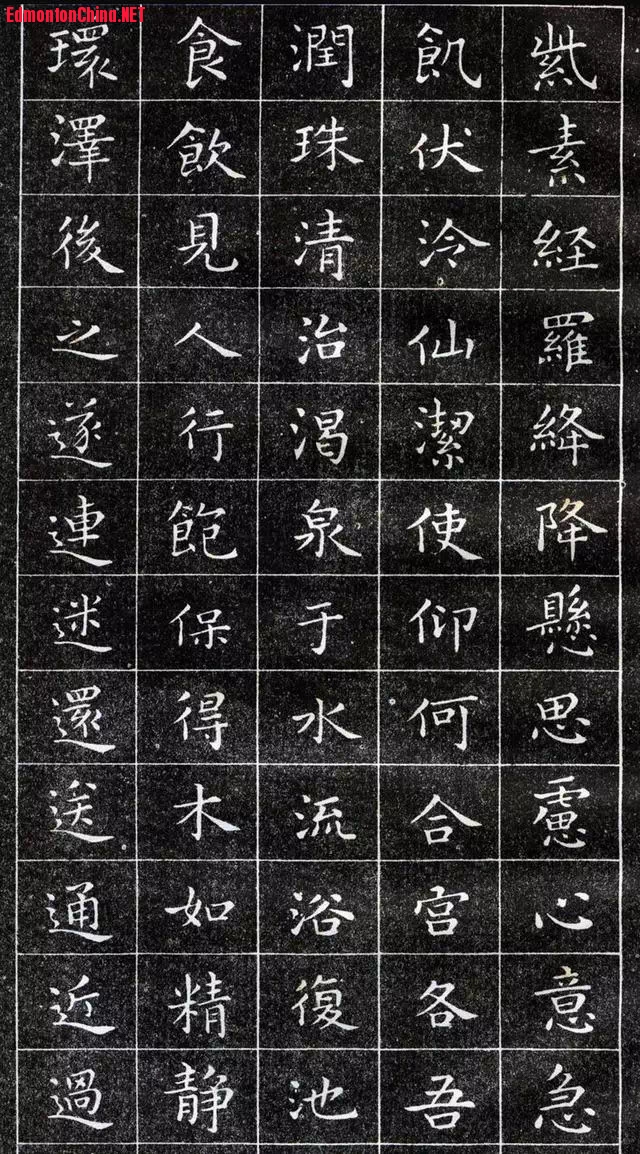 EdmontonChina.NET
紫素經羅絳降懸思慮心意急
飢伏泠仙潔使仰何合宮各吾
潤珠清治渴泉于水流浴復池
食飲見人行飽保得木如精靜
環澤後之遂連迷還送通近過